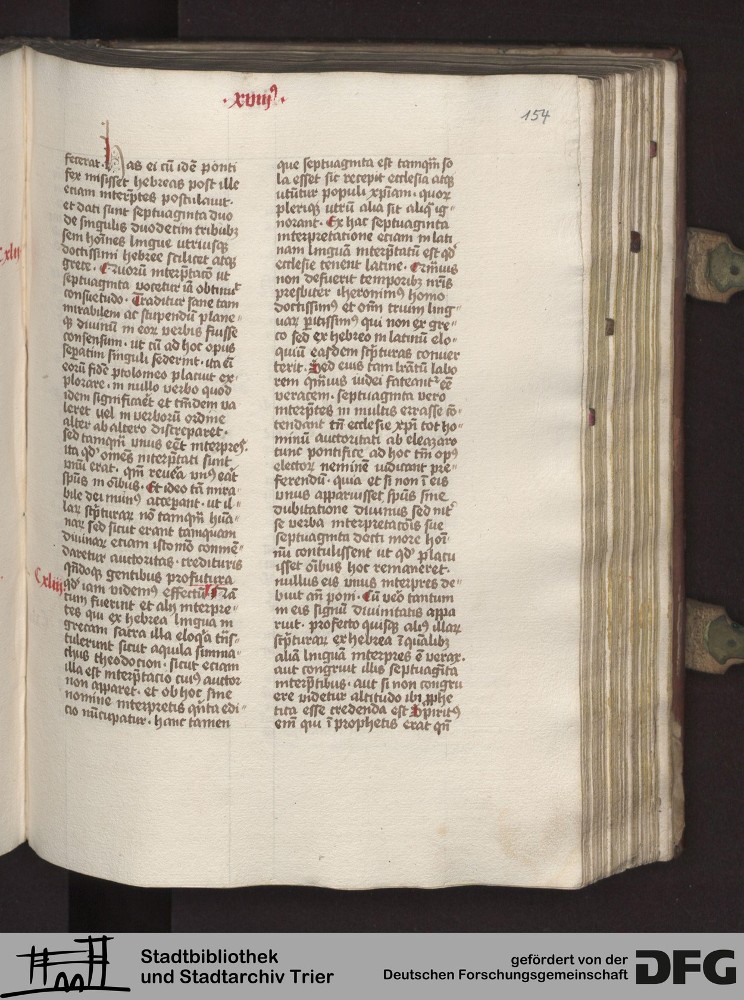 ·xviij·
154
fecerat. Has ei cū idē ponti
fex misisset hebreas post ille
etiam interp̄tes postulauit.
et dati sunt septuaginta duo
de singulis duodecim tribubꝫ
sem hoīnes lingue utriusqꝫ
doctissimi hebree scilicet atqꝫ
grece. Quorū interp̄tacō ut
septuaginta vocetur iā obtinuit
consuetudo. Traditur sane tam
mirabilem ac stupendū plane
qꝫ diuinū in eoꝝ verbis fuisse
consensum. ut cū ad hoc opus
sep̄atim singuli sederint. ita ei
eorū fidē ptolomeo placuit ex-
plorare. in nullo verbo quod
idem significaēt et tm̄dem va
leret uel in verborū ordine
alter ab altero discreparet.
sed tamqm̄ vnus eēt interpres.
ita qd' omēs interp̄tati sunt
vnū erat. qm̄ reuēa vnꝰ eāt
sp̄us in oībus. Et ideo tā mira-
bile dei munꝰ acceperant. ut il-
laꝝ sc̄pturaꝝ nō tamqm̄ hūa-
naꝝ sed sicut erant tamquam
diuinaꝝ etiam istomō commē-
daretur auctoritas. credituris
qn̄doqꝫ gentibus profutura
Cxliij
qd' iam videmꝰ effectū. Nā
cum fuerint et alij interpre-
tes qui ex hebrea lingua in
grecam sacra illa eloq̄a trās-
tulerunt sicut aquila simma
chus theodocion. sicut etiam
illa est interp̄tacio cuiꝰ auctor
non apparet. et ob hoc sine
nomine interpretis qn̄ta edi-
cio nūcupatur. hanc tamen
que septuaginta est tamqm̄ so
la esset sic recepit ecclesia atqꝫ
utūtur populi xp̄iani. quoꝝ
pleriqꝫ utrū alia sit aliq̄ ig-
norant. Ex hac septuaginta
interpretatione etiam in lati
nam linguā interp̄tatū est qd'
ecclesie tenent latine. Qm̄uis
non defuerit temporibꝫ nr̄is
presbiter iheronimꝰ homo
doctissimꝰ et om̄i trium ling-
uaꝝ p̄itissimꝰ qui non ex gre-
co sed ex hebreo in latinū elo-
quiū easdem sc̄pturas conuer
terit. Sed eius tam lr̄atū labo
rem qm̄uis iudei fateantᷣ eē
veracem. septuaginta vero
interp̄tes in multis errasse cō-
tendant tn̄ ecclesie xp̄i tot ho-
minū auctoritati ab eleazaro
tunc pontifice ad hoc tm̄ opꝰ
electoꝝ neminē iudicant pre-
ferendū. quia et si non ī eis
vnus apparuisset sp̄us sine
dubitatione diuinus sed int̄
se verba interpretacōis sue
septuaginta docti more hoī-
nū contulissent ut qd' placu
isset oībus hoc remaneret.
nullus eis vnus interpres de-
buit an̄ pom̄. Cū veō tantum
in eis signū diuinitatis appa
ruit. profecto quisqꝫ aliꝰ illaꝝ
sc̄pturaꝝ ex hebrea ī qualibꝫ
aliā linguā interpres ē verax.
aut congruit illis septuagīta
interp̄tibus. aut si non congru
ere videtur altitudo ibi ꝓphe
tica esse credenda est Spiritꝰ
enī qui ī prophetis erat qn̄
Stadtbibliothek
und Stadtarchiv Trier
gefördert von der
Deutschen Forschungsgemeinschaft
DFG